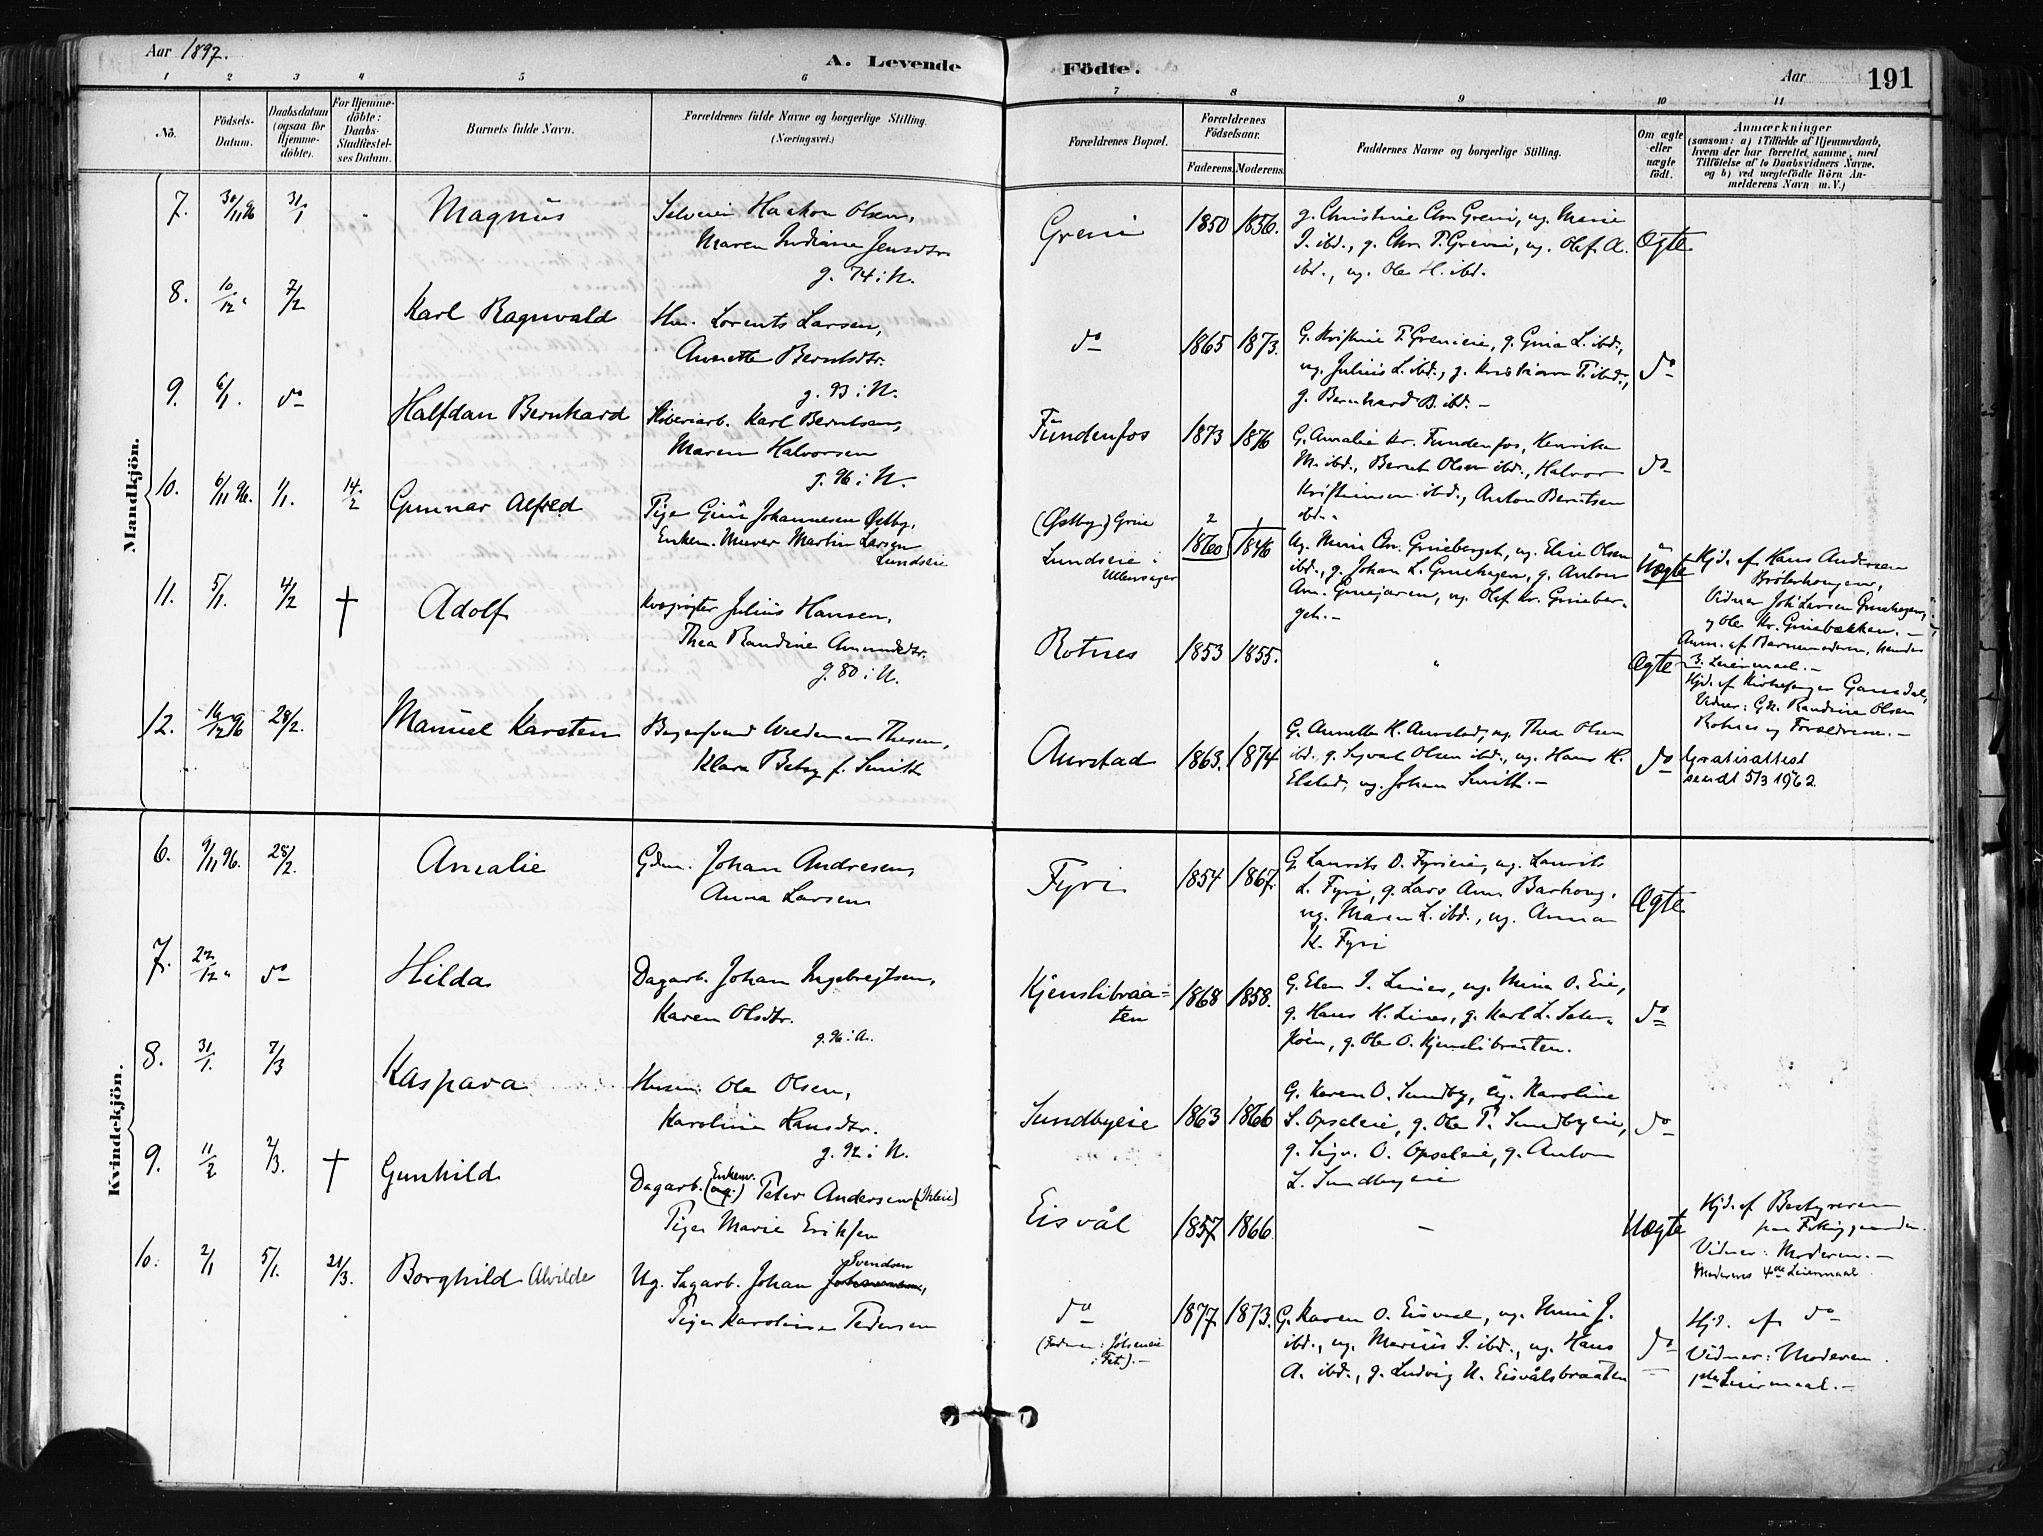 Aar 1897.
A. Levende
Födte.
Aar
191
1 2 3 4 5 6 7 8 9 10 11
No.
Födsels-
Datum.
Daabsdatum
(ogsaa for
Hjemme-
döbte).
For Hjemme-
döbte:
Daabs-
Stadfæstel-
ses Datum.
Barnets fulde Navn.
Forældrenes fulde Navne og borgerlige Stilling.
(Næringsvei.)
Forældrenes Bopæl.
Forældrenes
Födselsaar.
Faderens. Moderens.
Faddernes Navne og borgerlige Stilling.
Om ægte
eller
uægte
födt.
Anmærkninger
(saasom: a) i Tilfælde af Hjemmedaab,
hvem der har forrettet samme, med
Tilföielse af to Daabsvidners Navne,
og b) ved uægtefödte Börn An-
melderens Navn m. V.)
Mandkjön.
7. 30/11 96 31/1 " Magnus
Selveier Haakon Olsen,
Maren Indiane Jensdtr.
g. 74 i N.
Greni 1850 1856.
g. Christine Chr. Greni, ug. Marie
I. ibd., g. Chr. P. Greni, ug. Olaf A.
ibd., ug. Ole H. ibd.
Ægte
8. 10/12 " 7/2 Karl Ragnvald
Hm. Lorents Larsen,
Annette Berntsdtr.
g. 93 i N.
do 1865 1873.
G. Kristine P. Grenieie, g. Gina L. ibd.,
ug. Julius L. ibd., g. Kristian P. ibd.,
g. Bernhard B. ibd. –
do
9. 6/1. do Halfdan Bernhard
Karl Berntsen,
Maren Halvorsen
g. 96 i N.
Fundenfos 1873 1876
G. Amalie Kr. Fundenfos, Henrikke
M. ibd., Bernt Olsen ibd., Halvor
Kristiansen ibd., Anton Berntsen
ibd. "
do
10. 6/11 96. 1/1. 14/2 Gunnar Alfred
Pige Gina Johannesen Østby,
Enkem. Murer Martin Larsen
Lundseie
(Østby) Grine
Lundseie i
Ullensager
2 1860 1 1846
Ug. Mina Chr. Grineberget, ug. Elise Olsen
ibd., g. Johan L. Grinehagen, g. Anton
Am. Grinejaren, ug. Olaf Kr. Grineber-
get. –
Uægte
Hjd. af Hans Andersen
Vidner Joh. Larsen Grinehagen,
og Ole Kr. Grinebakken. –
Anm. af Barnemoderen, hendes
3. Leiermaal. –
11. 5/1. 4/2 † Adolf
Kvægrøgter Julius Hansen,
Thea Randine Amundsdtr.
g. 80 i N.
Rotnes 1853 1855. "
Ægte
Hjd. af Kirkesanger Gansdal,
Vidner: Gk. Randine Olsen
Rotnes og Forældrene. –
12. 16/12 96 28/2. Manuel Karsten
Bagersvend Waldemar Thesen,
Klara Betsy f. Smith
Aurstad 1863. 1874
G. Annette H. Aurstad, ug. Thea Olsen
ibd. g. Sigval Olsen ibd., ug. Hans K.
Elstad, ug. Johan Smith. –
do
Gratisattest
sendt 5/3 1962.
Kvindekjön.
6. 9/11 96. 28/2. Amalie
Gdm. Johan Andresen,
Anna Larsen
Fyri 1854 1867.
G. Laurits O. Fyrieie, ug. Laurits
L. Fyri, g. Lars Am. Barhoug,
ug. Maren L. ibd., ug. Anna
K. Fyri
Ægte
7. 22/12 " do Hilda
Dagarb. Johan Ingebregtsen,
Karen Olsdtr.
g. 96 i A.
Kjenslibraa-
ten
1868 1858.
G. Elen I. Linies, ug. Mina O. Eie,
g. Hans H. Lines, g. Karl L. Sater-
g. Ole O. Kjenslibraaten.
do
8. 31/1. 7/3 Kaspara
Husm. Ole Olsen,
Karoline Hansdtr.
g. 92 i N.
Sundbyeie 1863 1866
G. Karen O. Sundby, Ug. Karoline
S. Opsaleie, g. Ole P. Sundbyeie,
g. Sigv. O. Opsaleie, g. Anton
L. Sundbyeie
do
9. 11/2 2/3. † Gunhild
Dagarb. (ug.) Enkem. Peter Andersen
Pige Marie Eriksen
Eisvål 1857 1866. –
Uægte
Hjd. af Bestyreren
paa Fattiggaarden.
Vidner: Moderen. –
Moderens 4de Leiermaal.
10. 2/1 5/1. 21/3. Borghild Alvilde
Svendsen
Ug. Sagarb. Johan Johannesen,
Pige Karoline Pedersen
do 1877 1873.
(Faderen: Jølseneie
i Fet). –
G. Karen O. Eisvaal, ug. Mina J.
ibd., ug. Marius I. ibd., ug. Hans
A. ibd., g. Ludvig N. Eisvålsbraaten
do
Hjd. af do
Vidner: Moderen.
1ste Leiermaal. –